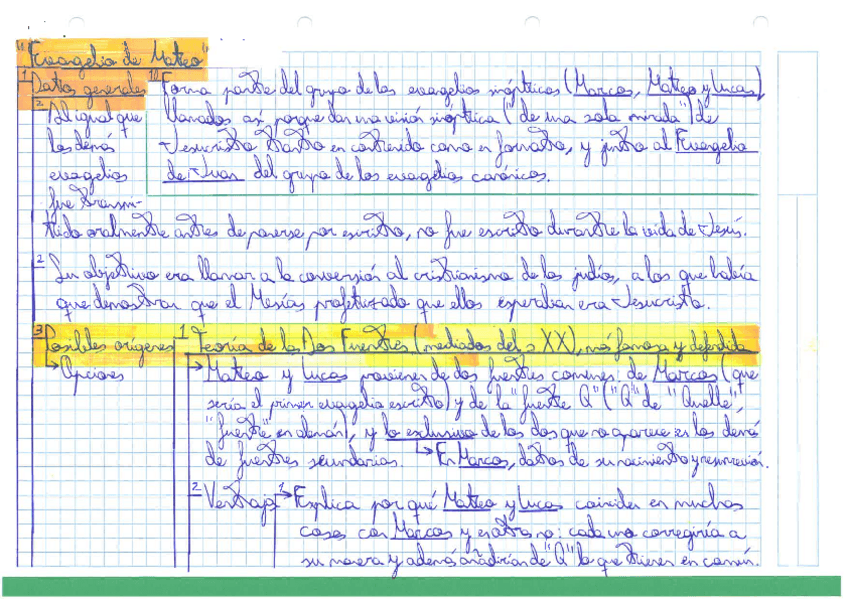 "Evangelio de Mateo"
1 Datos generales
1º Forma parte del grupo de los evangelios sinópticos (Marcos, Mateo y Lucas)
llamados así porque dan una visión sinóptica ("de una sola mirada") de
Jesucristo tanto en contenido como en formato, y junto al Evangelio
de Juan del grupo de los evangelios canónicos.
2 Al igual que
los demás
evangelios
fue transmi-
tido oralmente antes de ponerse por escrito, no fue escrito durante la vida de Jesús.
2 Su objetivo era llamar a la conversión al cristianismo de los judíos, a los que había
que demostrar que el Mesías profetizado que ellos esperaban era Jesucristo.
3 Posibles orígenes
→ Opciones
1 Teoría de las Dos Fuentes (mediados del s XX), más famosa y defendida
→ Mateo y Lucas provienen de dos fuentes comunes: de Marcos (que
sería el primer evangelio escrito) y de la "fuente Q" ("Q" de "Quelle",
"fuente" en alemán), y lo exclusivo de los dos que no aparece en los demás
de fuentes secundarias. → En Marcos, datos de su nacimiento y resurrección.
2 Ventajas
1 → Explica por qué Mateo y Lucas coinciden en muchas
cosas con Marcos y en otras no: cada uno corregiría a
su manera y además añadirían de "Q" lo que tienen en común.